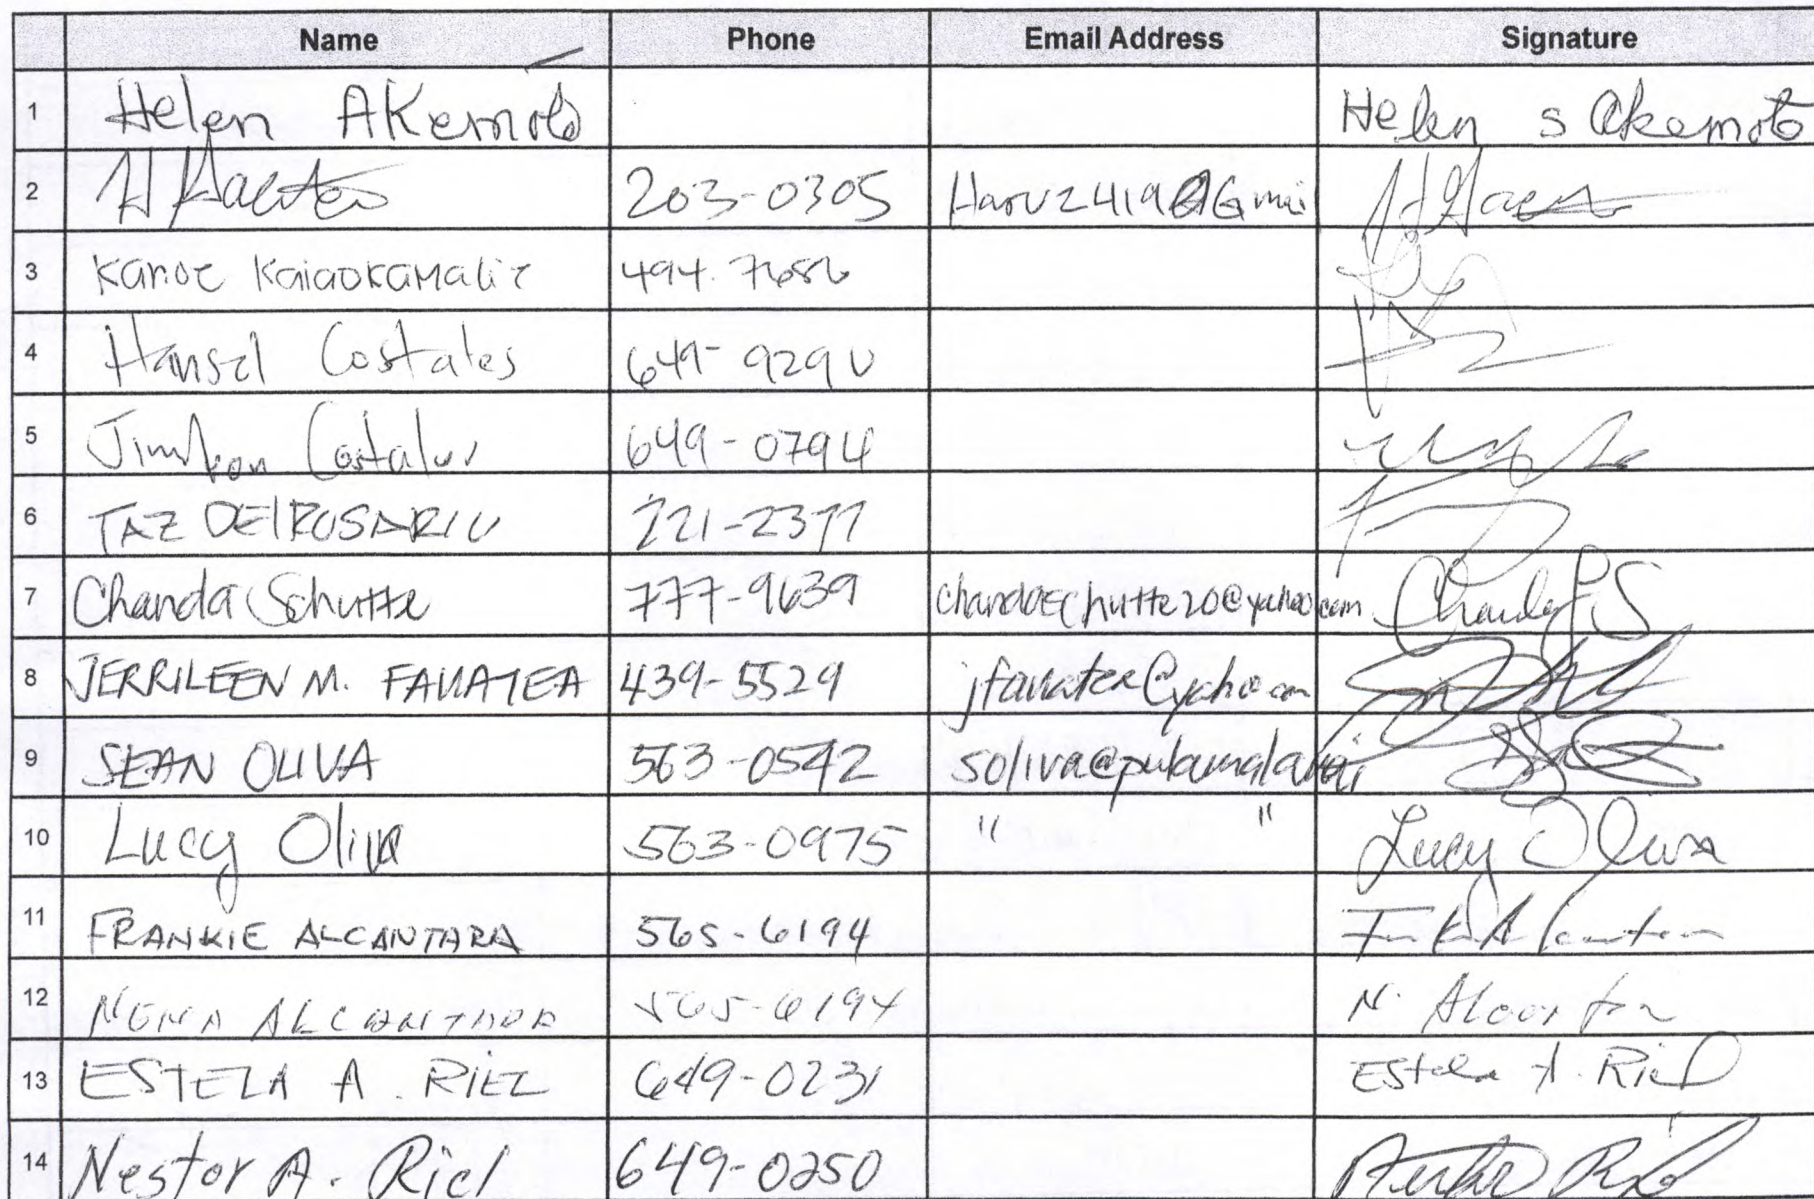 Name Phone Email Address Signature
1 Helen AKemoto Helen S Akemoto
2 203-0305
3 Kanoe Kaiaokamalie 494.7656
4 Hansel Costales 649-9290
5 Costales 649-0794
6 TAZ DelROSARIO 221-2377
7 Chanda Schutte 777-9639 chandaschutte20@yahoo.com
8 JERRILEEN M. FAUATEA 439-5529 jfauatea@yahoo.com
9 SEAN OLIVA 563-0542 soliva@pulamalanai
10 Lucy Oliva 563-0975 " " Lucy Oliva
11 FRANKIE ALCANTARA 565-6194
12 ALCANTARA 565-6194 N.
13 ESTELA A. RIEL 649-0231 Estela A. Riel
14 Nestor A. Riel 649-0250